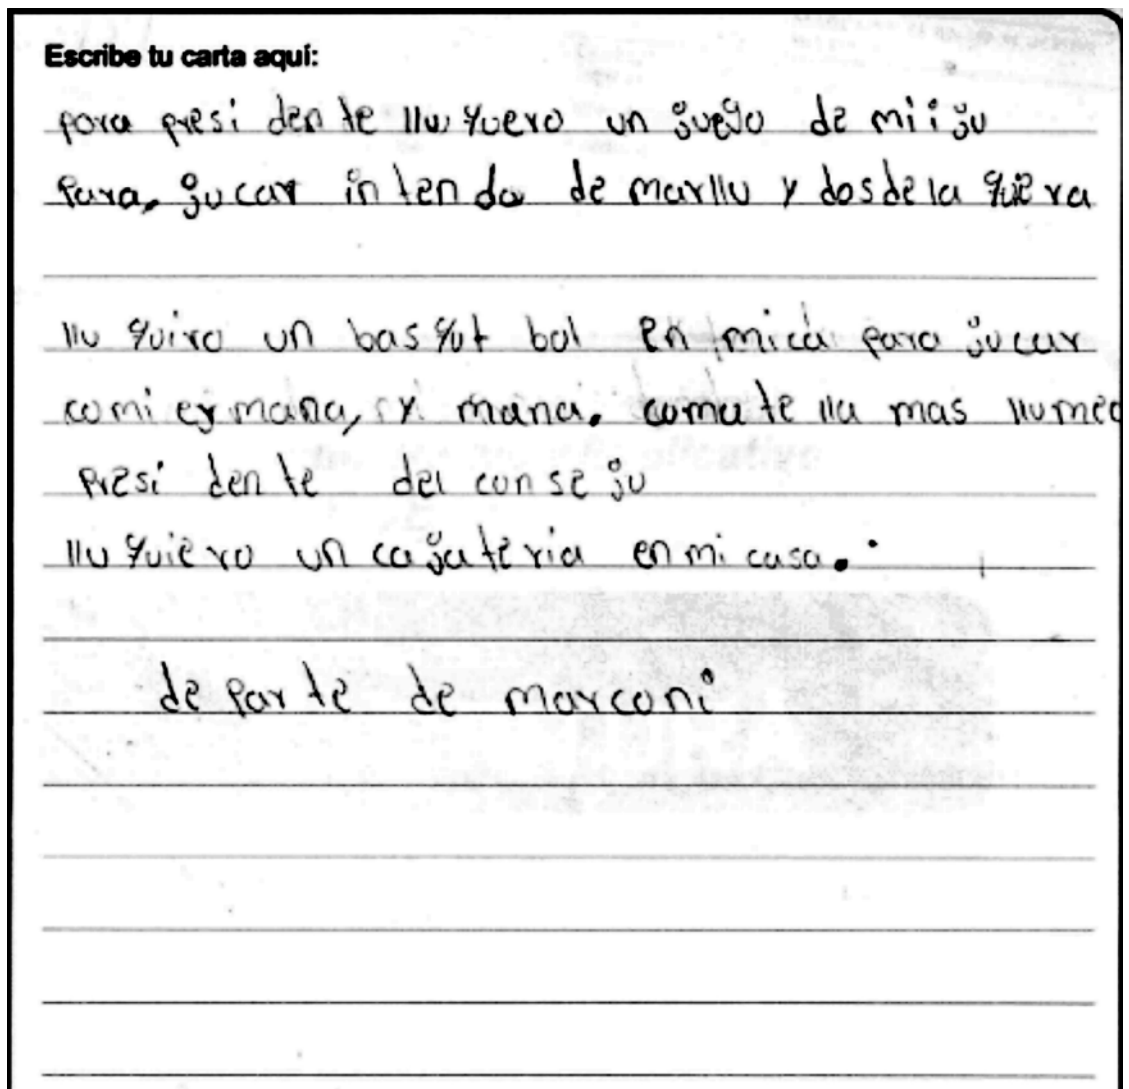 Escribe tu carta aquí:
para presi den te llu quero un juejo de mi i ju
para, jucar in ten do de marllu y dos de la quiera
llu quiro un bas qut bol en mica para jucar
comi er mana, y mana. coma te lla mas llu me
presi den te del con se ju
llu quiero un cajateria en mi casa.
de par te de marconi